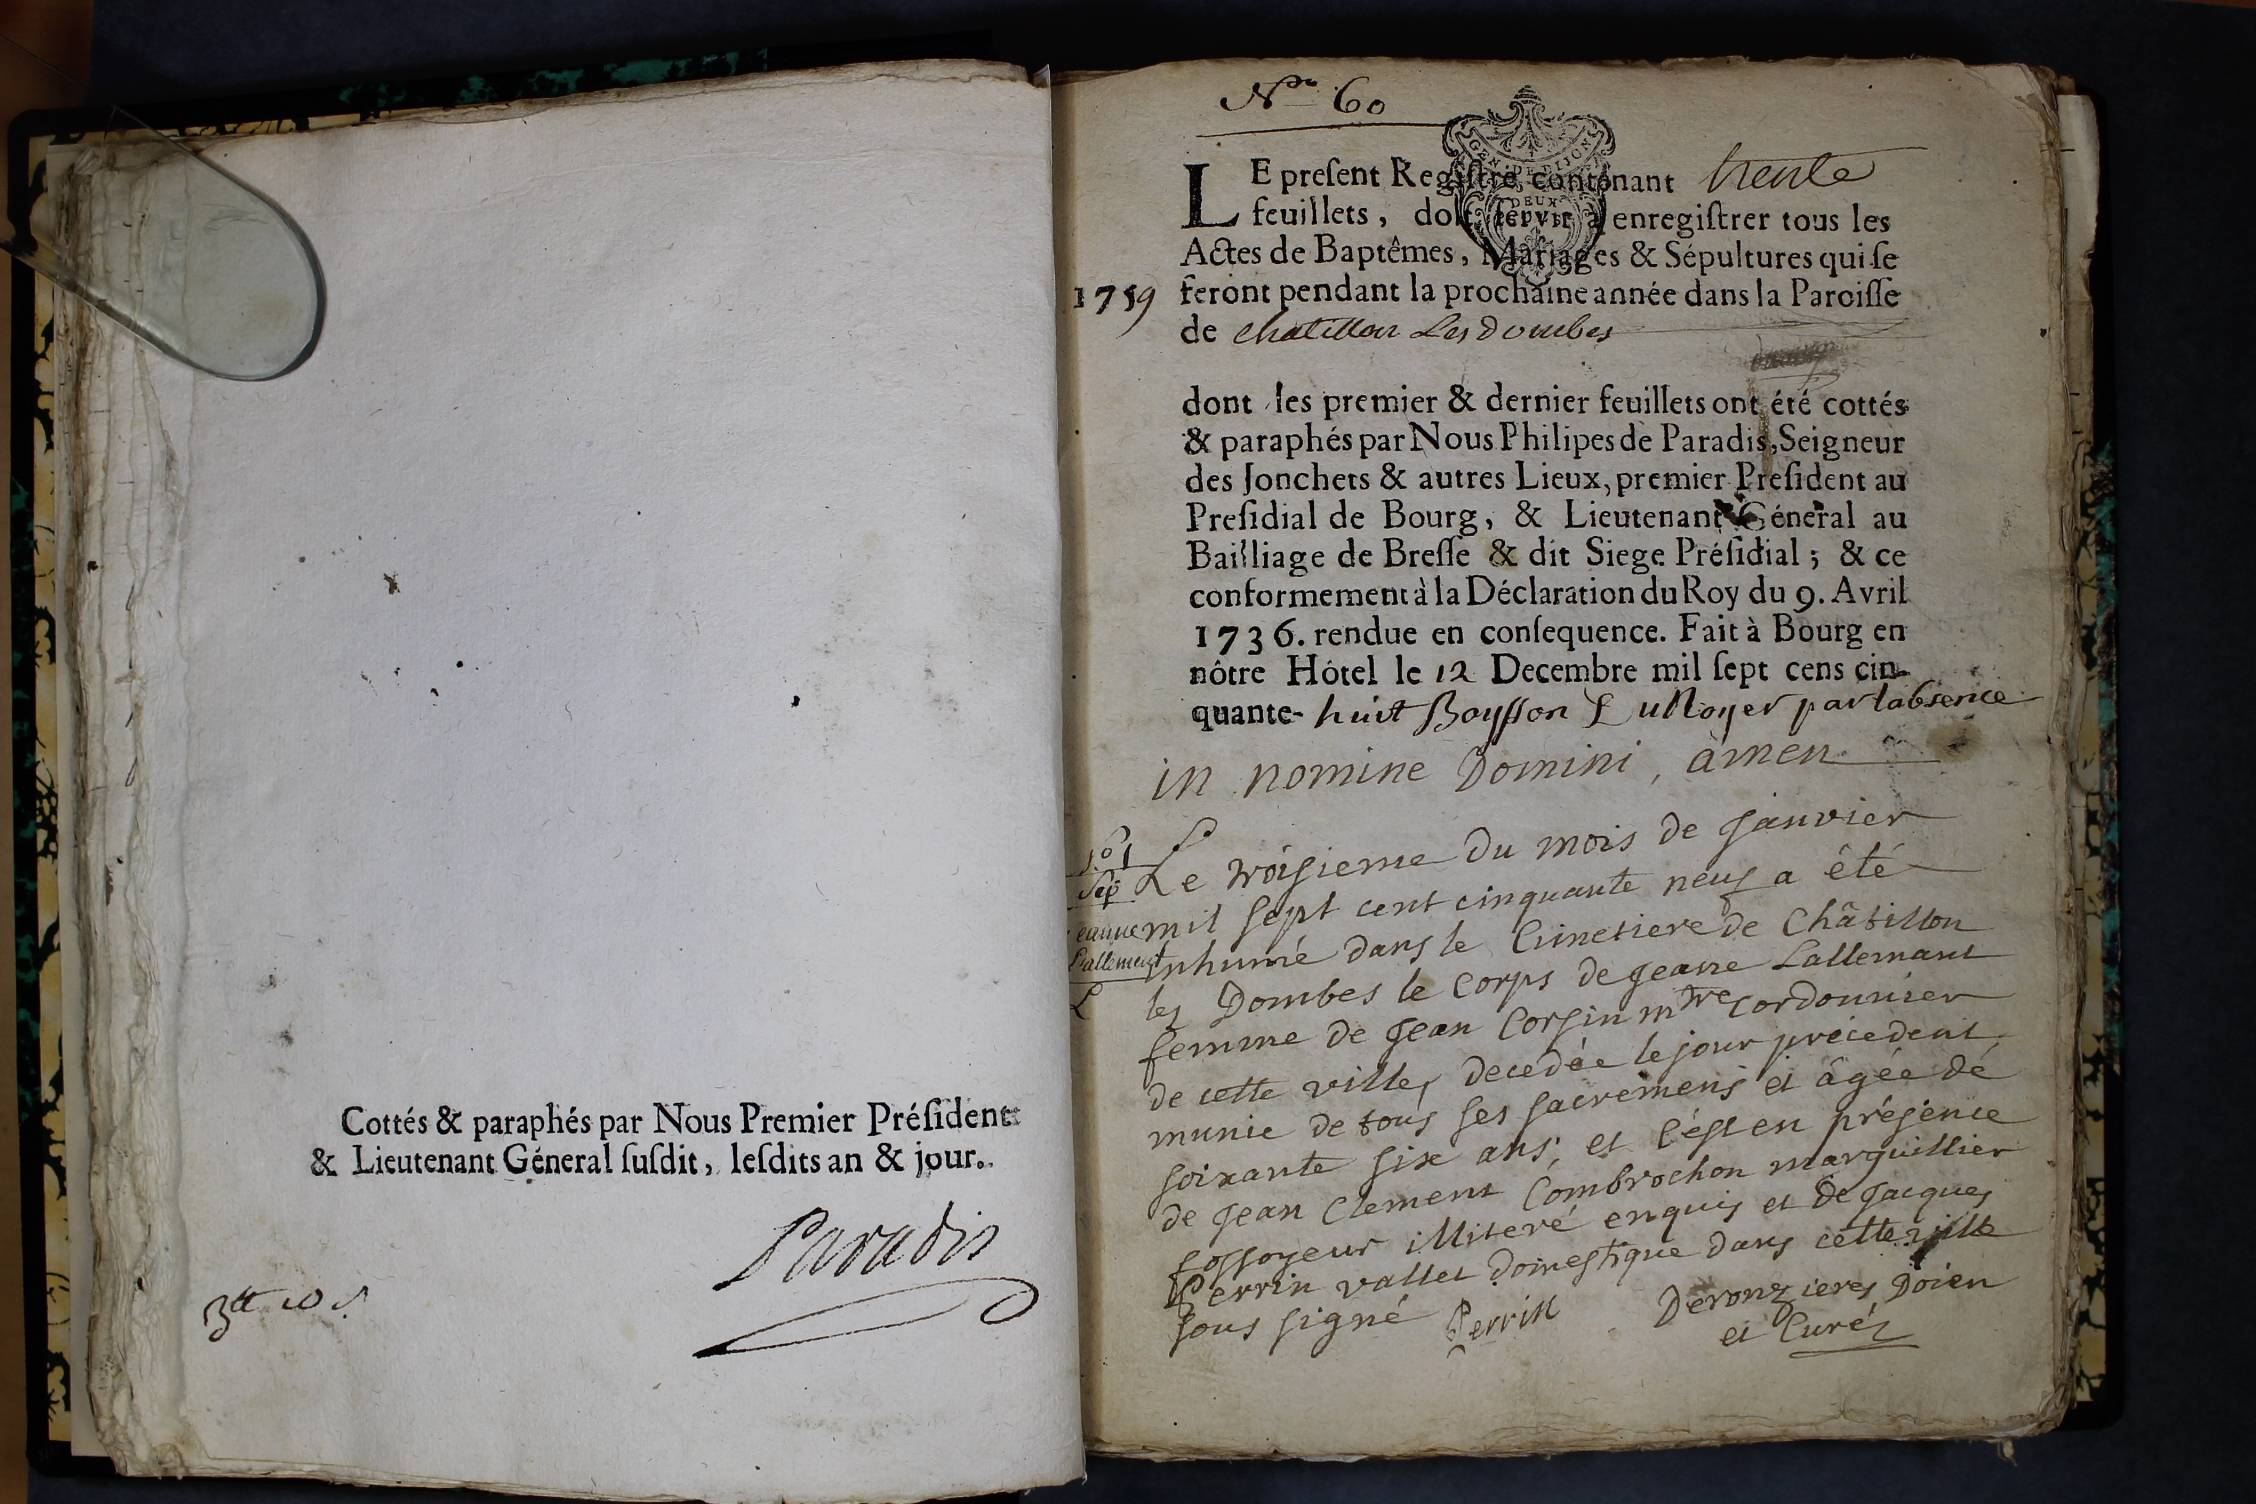 Cottés & paraphés par Nous Premier Préſident
& Lieutenant Géneral ſuſdit, leſdits an & jour.
Paradis
3tt 10 s
No 60
GEN · DE DIJON
DEUX
LE preſent Regiſtre contenant trente
feuillets, doit ſervir à enregiſtrer tous les
Actes de Baptêmes, Mariages & Sépultures qui ſe
1759 feront pendant la prochaine année dans la Paroiſſe
de chatillon Les dombes
dont les premier & dernier feuillets ont été cottés
& paraphés par Nous Philipes de Paradis, Seigneur
des Jonchets & autres Lieux, premier Preſident au
Preſidial de Bourg, & Lieutenant Géneral au
Bailliage de Breſſe & dit Siege Préſidial; & ce
conformement à la Déclaration du Roy du 9. Avril
1736. rendue en conſequence. Fait à Bourg en
nôtre Hôtel le 12 Decembre mil ſept cens cin-
quante- huit par labsence
in nomine Domini, amen
Sep
Lallemant
Le troisieme du mois de janvier
mil sept cent cinquante neuf a été
inhumé dans le Cimetiere de Châtillon
les Dombes le corps de jeanne Lallemant
femme de jean Corsin mtre cordonnier
de cette ville, decedée le jour précedent
munie de tous ses sacremens et âgée de
soixante six ans, et c'est en présence
de jean Clement Combrochon marguillier
fossoyeur illiteré enquis et de jacques
Perrin vallet domestique dans cette ville
sous signé Perrin Deronzieres Doien
et Curé